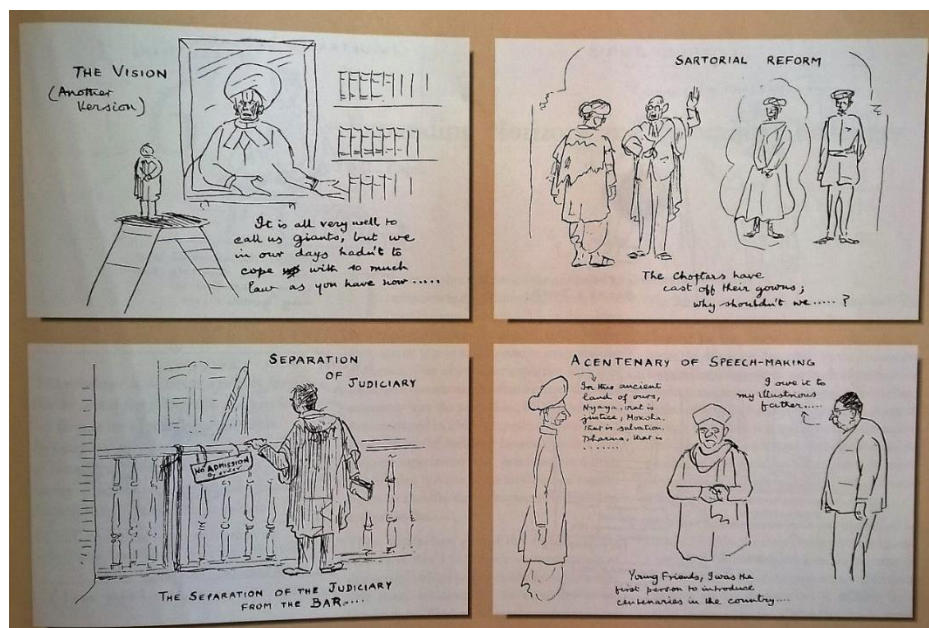 THE VISION
(Another
Version)
It is all very well to
call us giants, but we
in our days hadn't to
cope with so much
law as you have now.....
SARTORIAL REFORM
The Choptars have
cast off their gowns;
why shouldn't we.....?
SEPARATION
OF JUDICIARY
NO ADMISSION
By order
THE SEPARATION OF THE JUDICIARY
FROM THE BAR....
A CENTENARY OF SPEECH-MAKING
In this ancient
land of ours,
Nyaya, that is
justice, Moksha,
that is salvation,
Dharma, that is
........
I owe it to
my illustrious
father.....
Young Friends, I was the
first person to introduce
centenaries in the country....